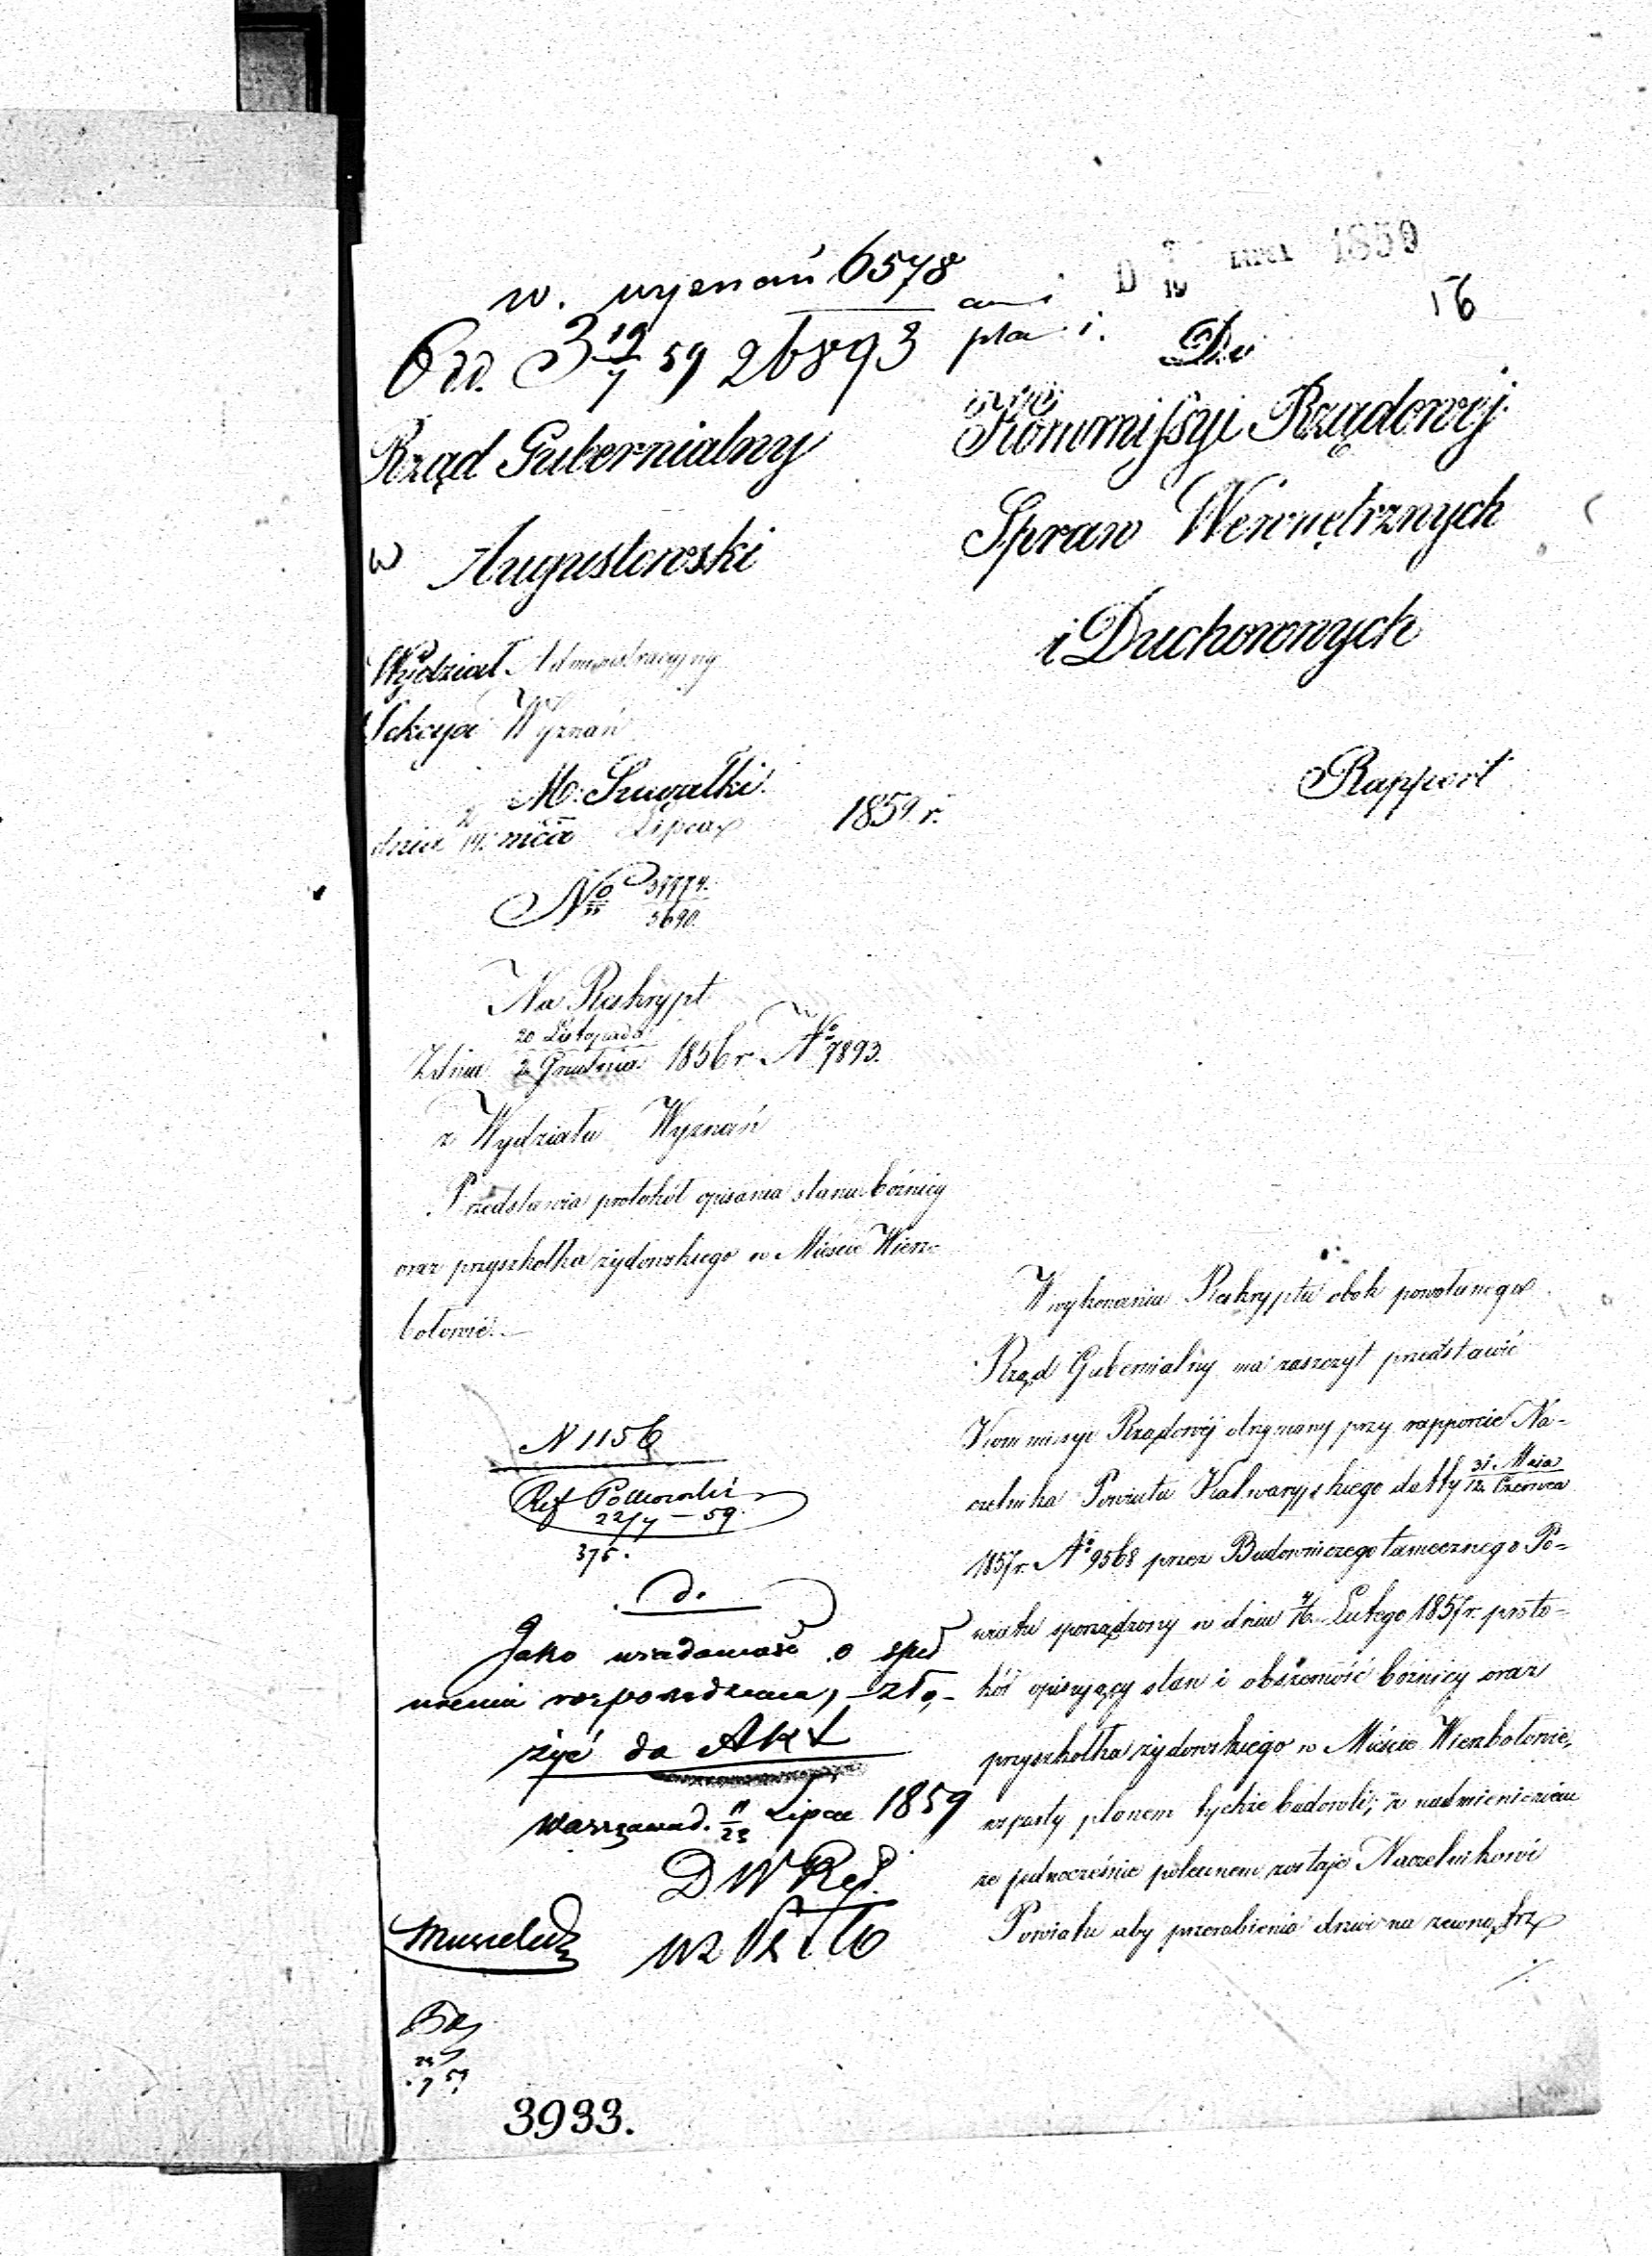 w. wyznań 6578
Odd. 3 19/7 59 26893
D 7/19 LIPCA 1859
16
Do
Rząd Gubernialny
Augustowski
Kommissyi Rządowéj
Spraw Wewnętrznych
i Duchownych
Rapport
Wydział Administracyjny
Sekcya Wyznań
M. Suwałki
dnia 2/14 mca Lipca 1859 r.
Na Reskrypt
Z dnia 20 Listopada / 2 Grudnia 1856 r. No 7893.
z Wydziału Wyznań
Przedstawia protokół opisania stanu bóżnicy
oraz przyszkołka żydowskiego w Mieście Wierz-
bołowie.
N 1156
Ref
22/7 – 59.
375.
d.
Jako wiadomość o speł
nieniu rozporządzenia, – zło-
żyć do Akt
Warszawa d. 11/23 Lipca 1859
D W Req.
3933.
W wykonaniu Reskryptu obok powołanego
Rząd Gubernialny ma zaszczyt przedstawić
Kommissyi Rządowéj otrzymany przy rapporcie Na-
czelnika Powiatu Kalwaryjskiego datty 31 Maja / 12 Czerwca
1857 r. No 9568 przez Budowniczego tamecznego Po-
wiatu sporządzony w dniu 4/16 Lutego 1857 r. proto-
kół opisujący stan i obszerność bóżnicy oraz
przyszkołka żydowskiego w Mieście Wierzbołowie,
wsparty planem tychże budowli; z nadmienieniem
że jednocześnie polecunem zostaje Naczelnikowi
Powiatu aby przerobienia drzwi na zewnątrz